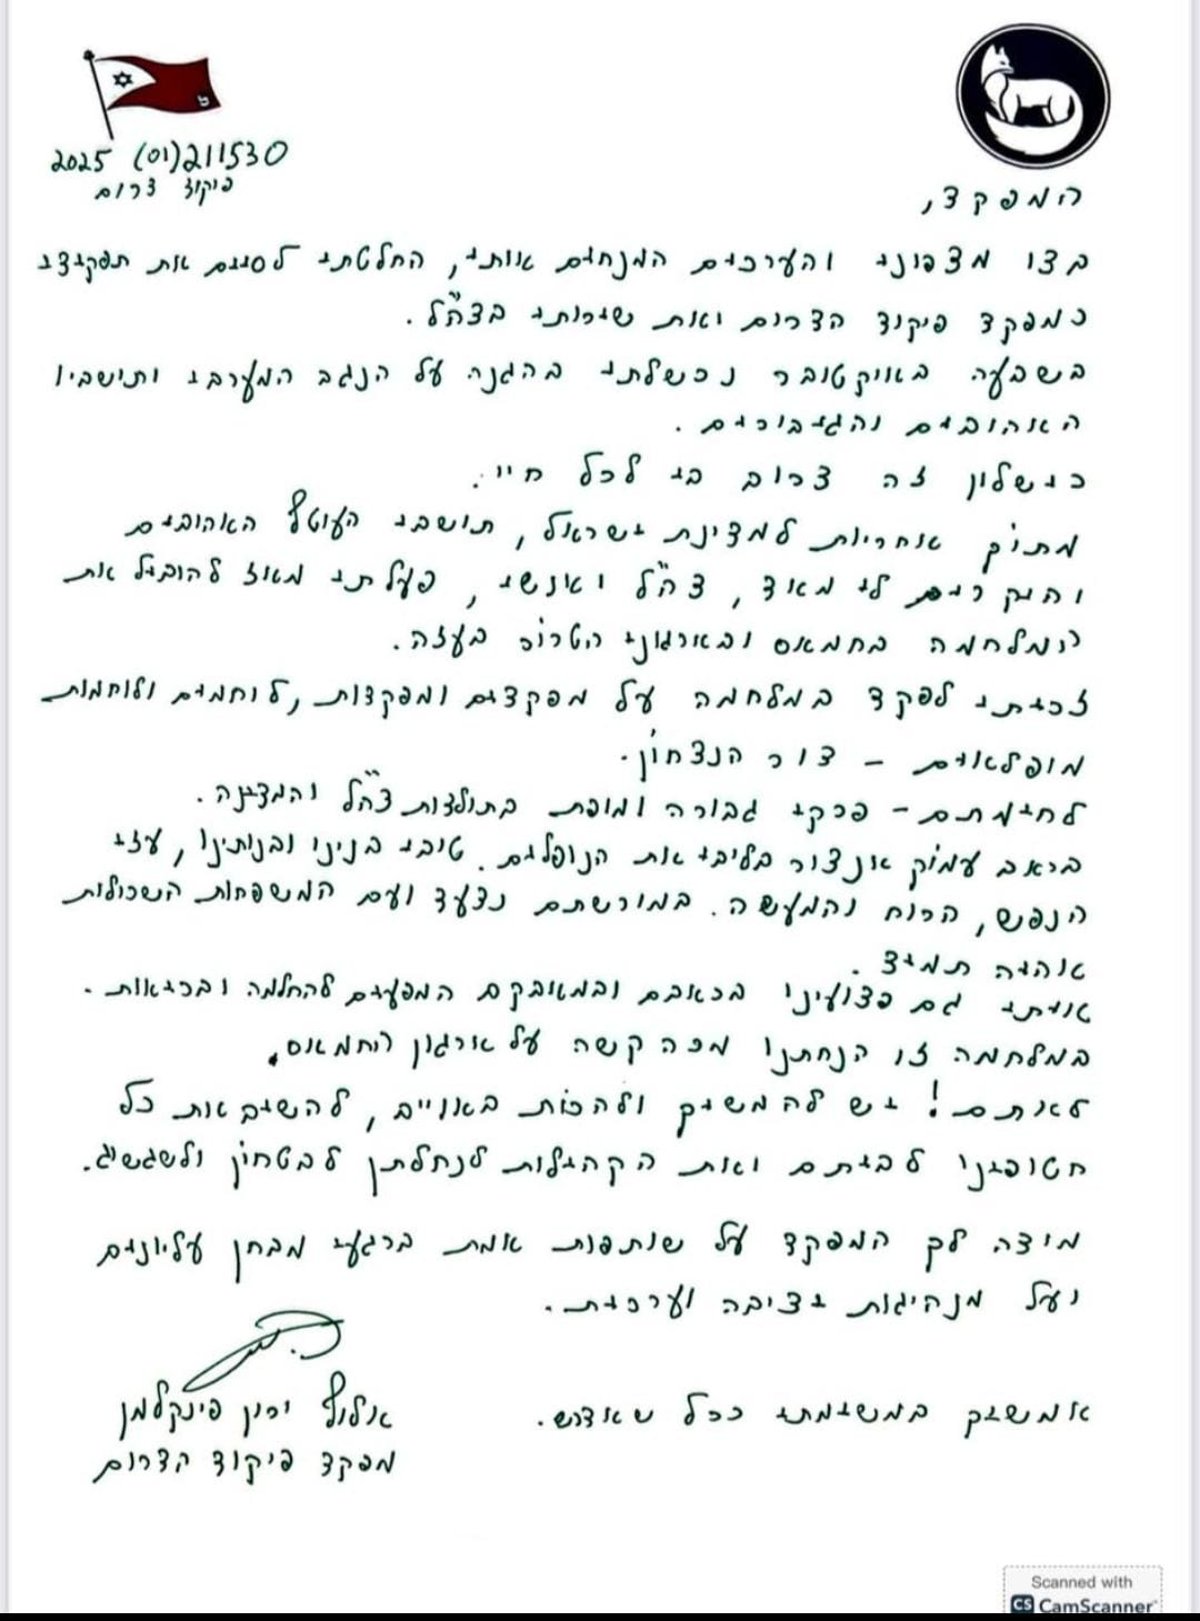 211530(01) 2025
פיקוד דרום
המפקד,
בצו מצפוני והערכים המנחים אותי, החלטתי לסיים את תפקידי
כמפקד פיקוד הדרום ואת שירותי בצה"ל.
בשבעה באוקטובר נכשלתי בהגנה על הנגב המערבי ותושביו
האהובים והגיבורים.
כישלון זה צרוב בי לכל חיי.
מתוך אחריות למדינת ישראל, תושבי העוטף האהובים
והיקרים לי מאוד, צה"ל ואנשיו, פעלתי מאז להוביל את
המלחמה בחמאס ובארגוני הטרור בעזה.
זכיתי לפקד במלחמה על מפקדים ומפקדות, לוחמים ולוחמות
מופלאים - דור הנצחון.
לחימתם - פרקי גבורה ומופת בתולדות צה"ל והמדינה.
בכאב עמוק אנצור בליבי את הנופלים. טובי בנינו ובנותינו, עזי
הנפש, הרוח והמעשה. במורשתם נצעד ועם המשפחות השכולות
אהיה תמיד.
איתי גם פצועינו בכאבם ובמאבקם המפעים להחלמה ובריאות.
במלחמה זו הנחתנו מכה קשה על ארגון החמאס.
לא תם! יש להמשיך ולהכות באויים, להשיב את כל
חטופינו לביתם ואת הקהילות לנחלתן לבטחון ולשגשוג.
מודה לך המפקד על שותפות אמת ברגעי מבחן עליונים
ועל מנהיגות יציבה וערכית.
אמשיך במשימתי ככל שאדרש.
אלוף ירון פינקלמן
מפקד פיקוד הדרום
Scanned with
CS CamScanner